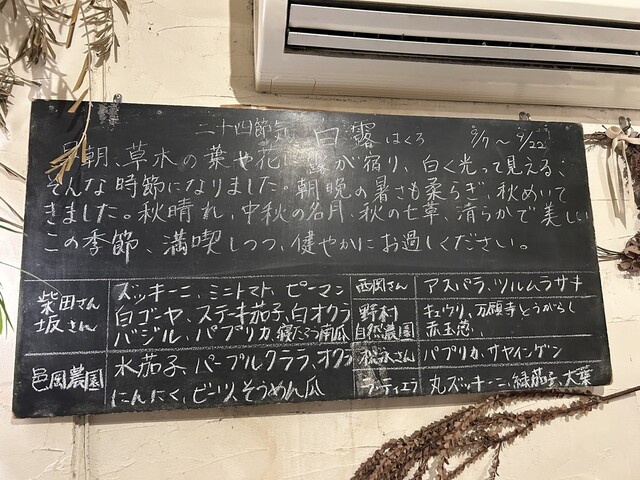 二十四節気 白露 はくろ 9/7 〜 9/22
早朝、草木の葉や花に露が宿り、白く光って見える、
そんな時節になりました。朝晩の暑さも柔らぎ、秋めいて
きました。秋晴れ、中秋の名月、秋の七草、清らかで美しい
この季節、満喫しつつ、健やかにお過しください。
柴田さん
坂さん
ズッキーニ、ミニトマト、ピーマン
白ゴーヤ、ステーキ茄子、白オクラ
バジル、パプリカ、寝たろう南瓜
西岡さん
アスパラ、ツルムラサキ
野村
自然農園
キュウリ、万願寺とうがらし
赤玉葱、
邑岡農園
水茄子、パープルクララ、オクラ
にんにく、ビーツ、そうめん瓜
松永さん
パプリカ、サヤインゲン
ラ・ティエラ
丸ズッキーニ、緑茄子、大葉